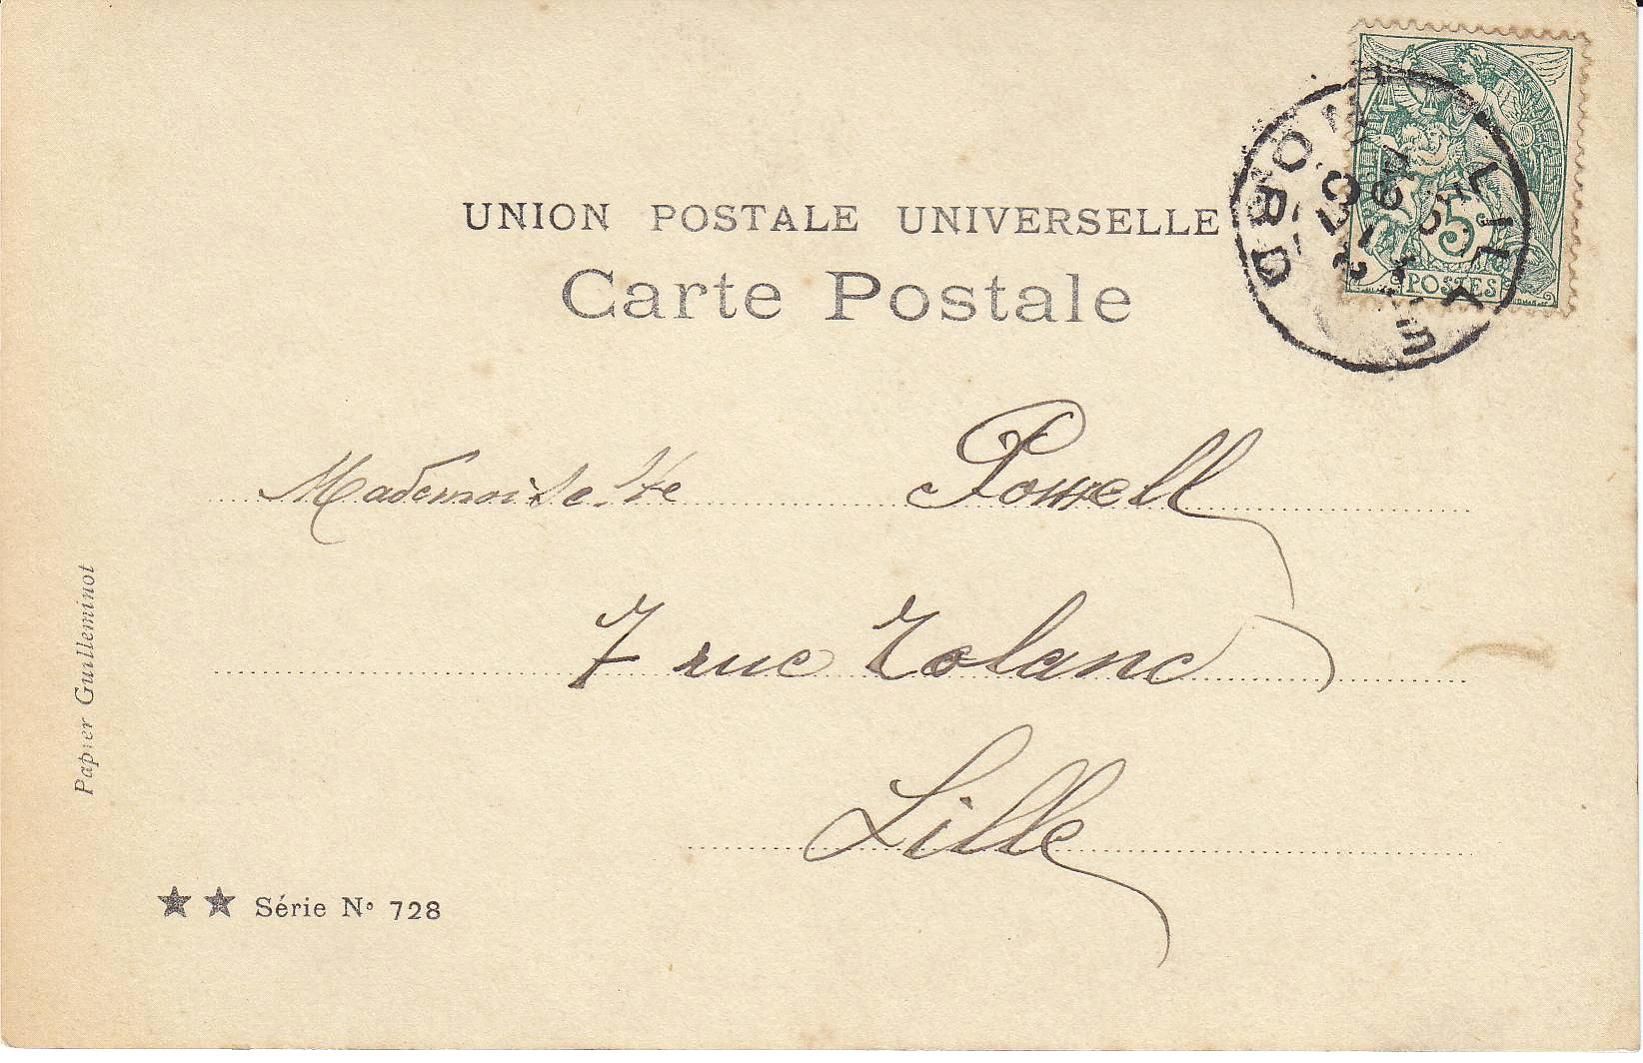 UNION POSTALE UNIVERSELLE
Carte Postale
LILLE
NORD
5
POSTES
Mademoiselle Powell
7 rue Roland
Lille
Papier Guilleminot
★★ Série N° 728